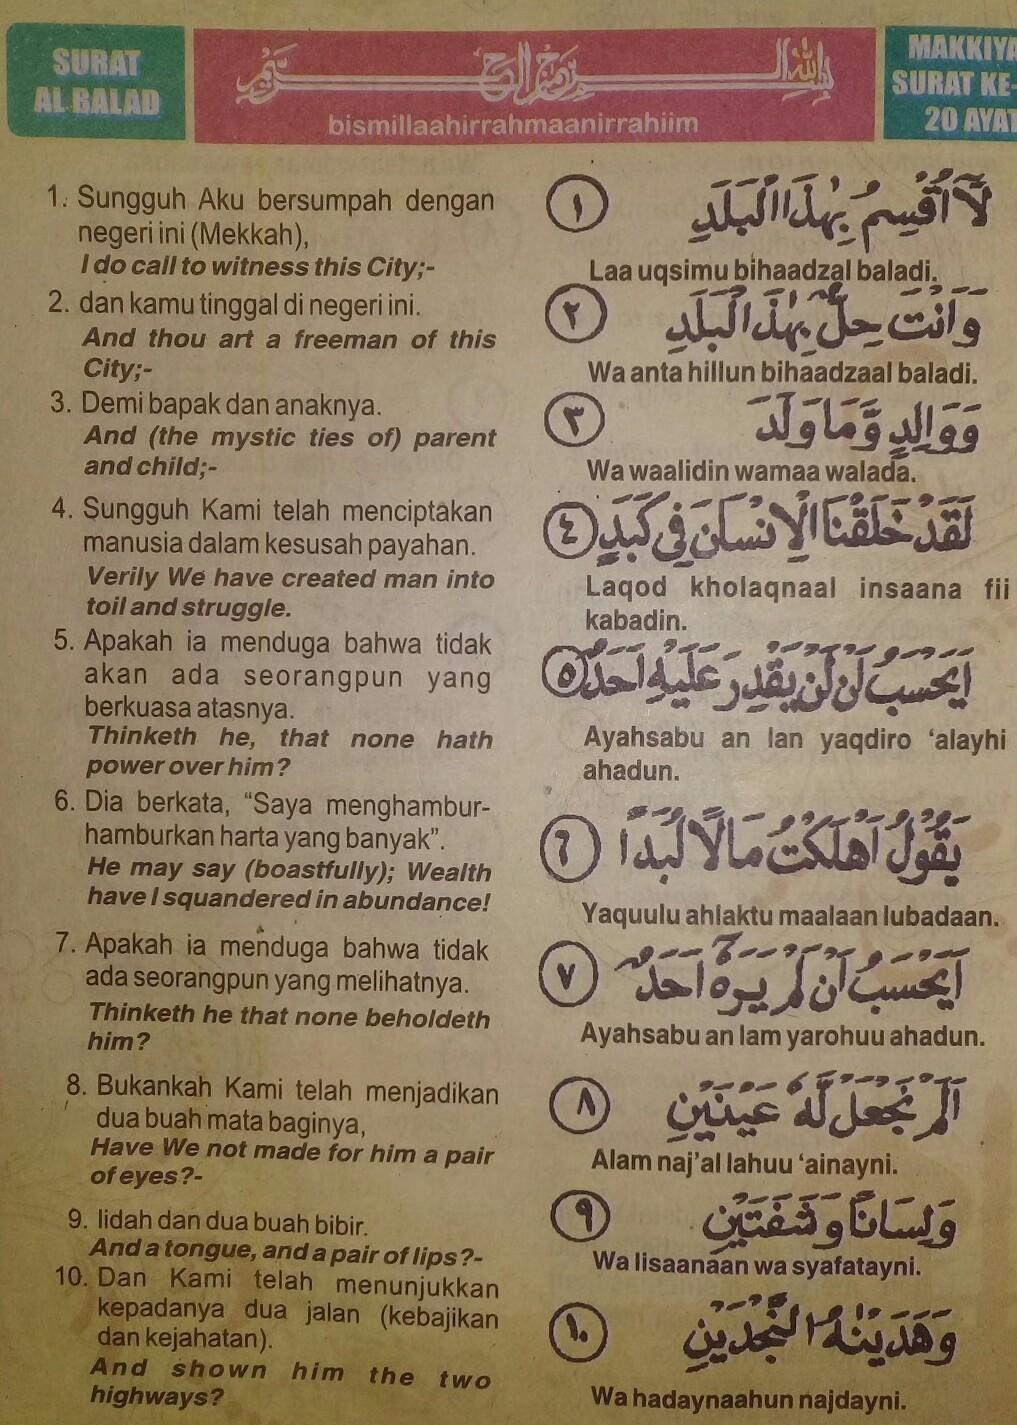 SURAT
AL BALAD
بسم الله الرحمن الرحيم
bismillaahirrahmaanirrahiim
MAKKIYA
SURAT KE-
20 AYAT
1. Sungguh Aku bersumpah dengan
negeri ini (Mekkah),
I do call to witness this City;-
لَآ اُقْسِمُ بِهٰذَا الْبَلَدِ ١
Laa uqsimu bihaadzal baladi.
2. dan kamu tinggal di negeri ini.
And thou art a freeman of this
City;-
وَاَنْتَ حِلٌّۢ بِهٰذَا الْبَلَدِ ٢
Wa anta hillun bihaadzaal baladi.
3. Demi bapak dan anaknya.
And (the mystic ties of) parent
and child;-
وَوَالِدٍ وَّمَا وَلَدَ ٣
Wa waalidin wamaa walada.
4. Sungguh Kami telah menciptakan
manusia dalam kesusah payahan.
Verily We have created man into
toil and struggle.
لَقَدْ خَلَقْنَا الْاِنْسَانَ فِيْ كَبَدٍ ٤
Laqod kholaqnaal insaana fii
kabadin.
5. Apakah ia menduga bahwa tidak
akan ada seorangpun yang
berkuasa atasnya.
Thinketh he, that none hath
power over him?
اَيَحْسَبُ اَنْ لَّنْ يَّقْدِرَ عَلَيْهِ اَحَدٌ ٥
Ayahsabu an lan yaqdiro ‘alayhi
ahadun.
6. Dia berkata, “Saya menghambur-
hamburkan harta yang banyak”.
He may say (boastfully); Wealth
have I squandered in abundance!
يَقُوْلُ اَهْلَكْتُ مَالًا لُّبَدًا ٦
Yaquulu ahlaktu maalaan lubadaan.
7. Apakah ia menduga bahwa tidak
ada seorangpun yang melihatnya.
Thinketh he that none beholdeth
him?
اَيَحْسَبُ اَنْ لَّمْ يَرَهٗٓ اَحَدٌ ٧
Ayahsabu an lam yarohuu ahadun.
8. Bukankah Kami telah menjadikan
dua buah mata baginya,
Have We not made for him a pair
of eyes?-
اَلَمْ نَجْعَلْ لَّهٗ عَيْنَيْنِ ٨
Alam naj’al lahuu ‘ainayni.
9. lidah dan dua buah bibir.
And a tongue, and a pair of lips?-
وَلِسَانًا وَّشَفَتَيْنِ ٩
Wa lisaanaan wa syafatayni.
10. Dan Kami telah menunjukkan
kepadanya dua jalan (kebajikan
dan kejahatan).
And shown him the two
highways?
وَهَدَيْنٰهُ النَّجْدَيْنِ ١٠
Wa hadaynaahun najdayni.